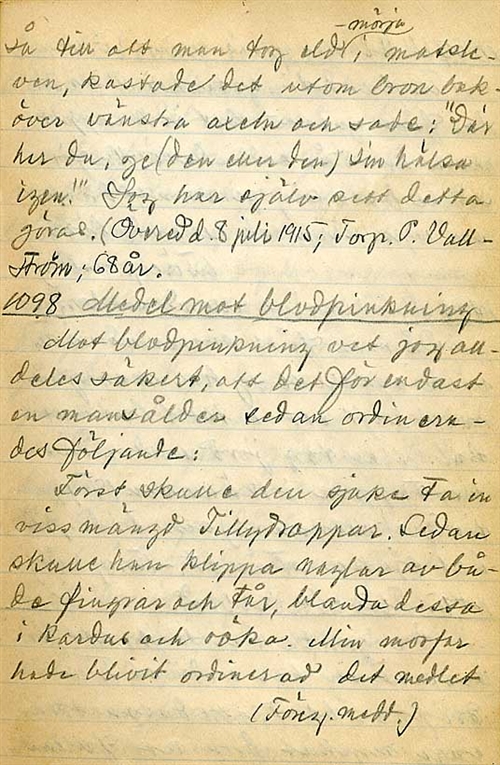 -mörja
så till att man tog eld i matske-
ven, kastade det utom bron bak-
över vänstra axeln och sade: "Där
har du, ge (den eller den) sin hälsa
igen!" Jag har själv sett detta
göras. (Överedd. 8 juli 1915; Torp. P. Vall-
ström; 68 år.
1098 Medel mot blodpinkning
Mot blodpinkning vet jag all-
deles säkert, att det för endast
en mansålder sedan ordinera-
des följande:
Först skulle den sjuke ta in
viss mängd Tillydroppar. Sedan
skulle han klippa naglar av bå-
de fingrar och tår, blanda dessa
i kardus och röka. Min morfar
hade blivit ordinerad det medlet
(Föreg. medd.)